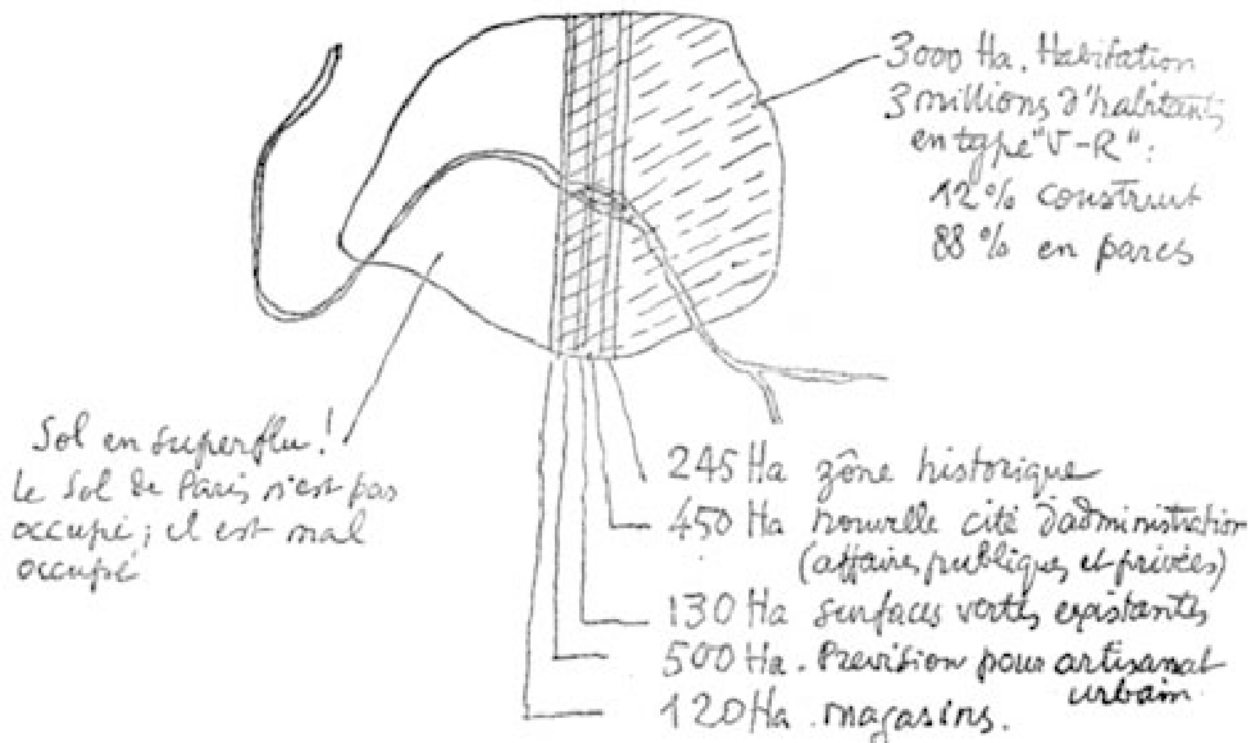 3000 Ha. Habitation
3 millions d'habitants
en type "V-R":
12% construit
88% en parcs
Sol en superflu!
le Sol de Paris n'est pas
occupé; il est mal
occupé
245 Ha zône historique
450 Ha nouvelle cité d'administration
(affaires publiques et privées)
130 Ha surfaces vertes existantes
500 Ha. Prevision pour artisanat
urbain
120 Ha. magasins.